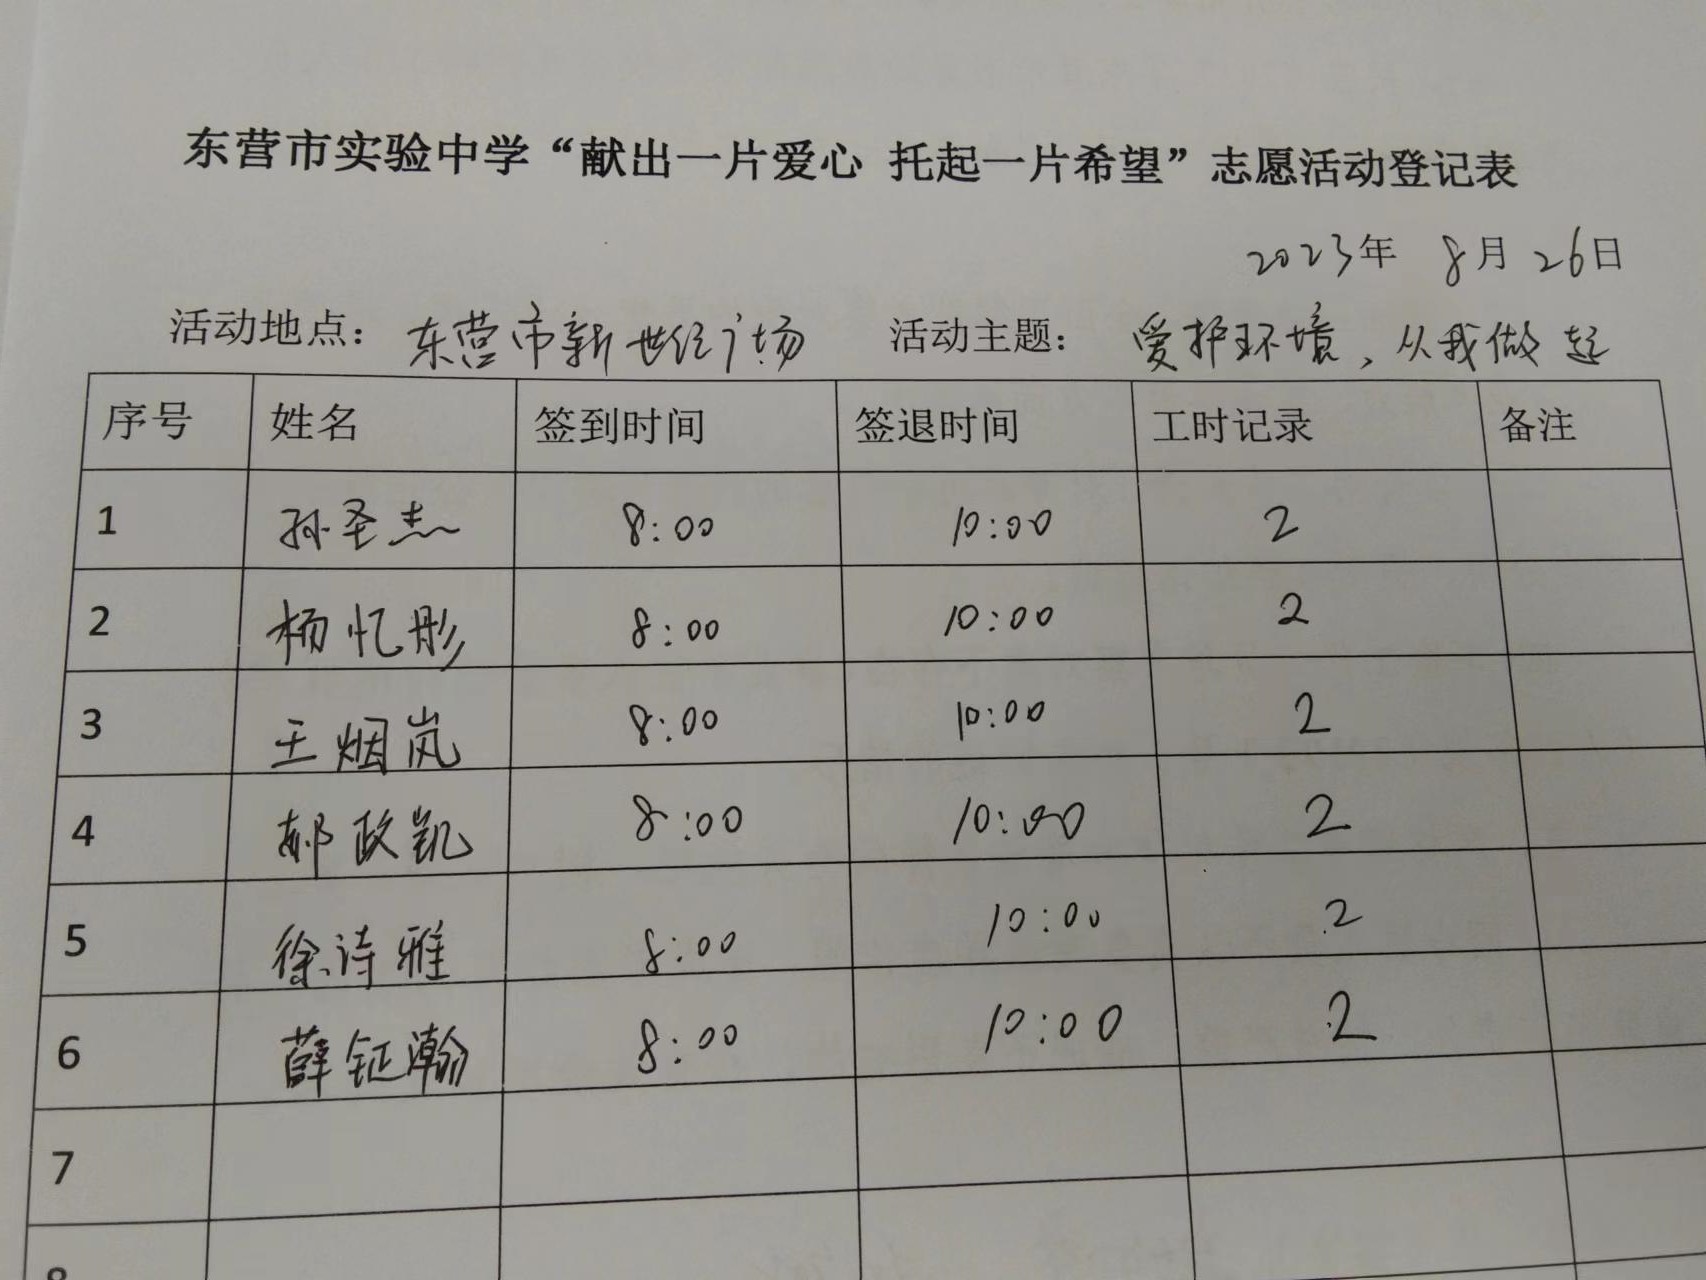 东营市实验中学“献出一片爱心 托起一片希望”志愿活动登记表
2023年 8月26日
活动地点：东营市新世纪广场 活动主题：爱护环境，从我做起
序号 姓名 签到时间 签退时间 工时记录 备注
1 孙圣杰 8:00 10:00 2
2 杨忆彤 8:00 10:00 2
3 王烟岚 8:00 10:00 2
4 郝政凯 8:00 10:00 2
5 徐诗雅 8:00 10:00 2
6 薛钲瀚 8:00 10:00 2
7
8